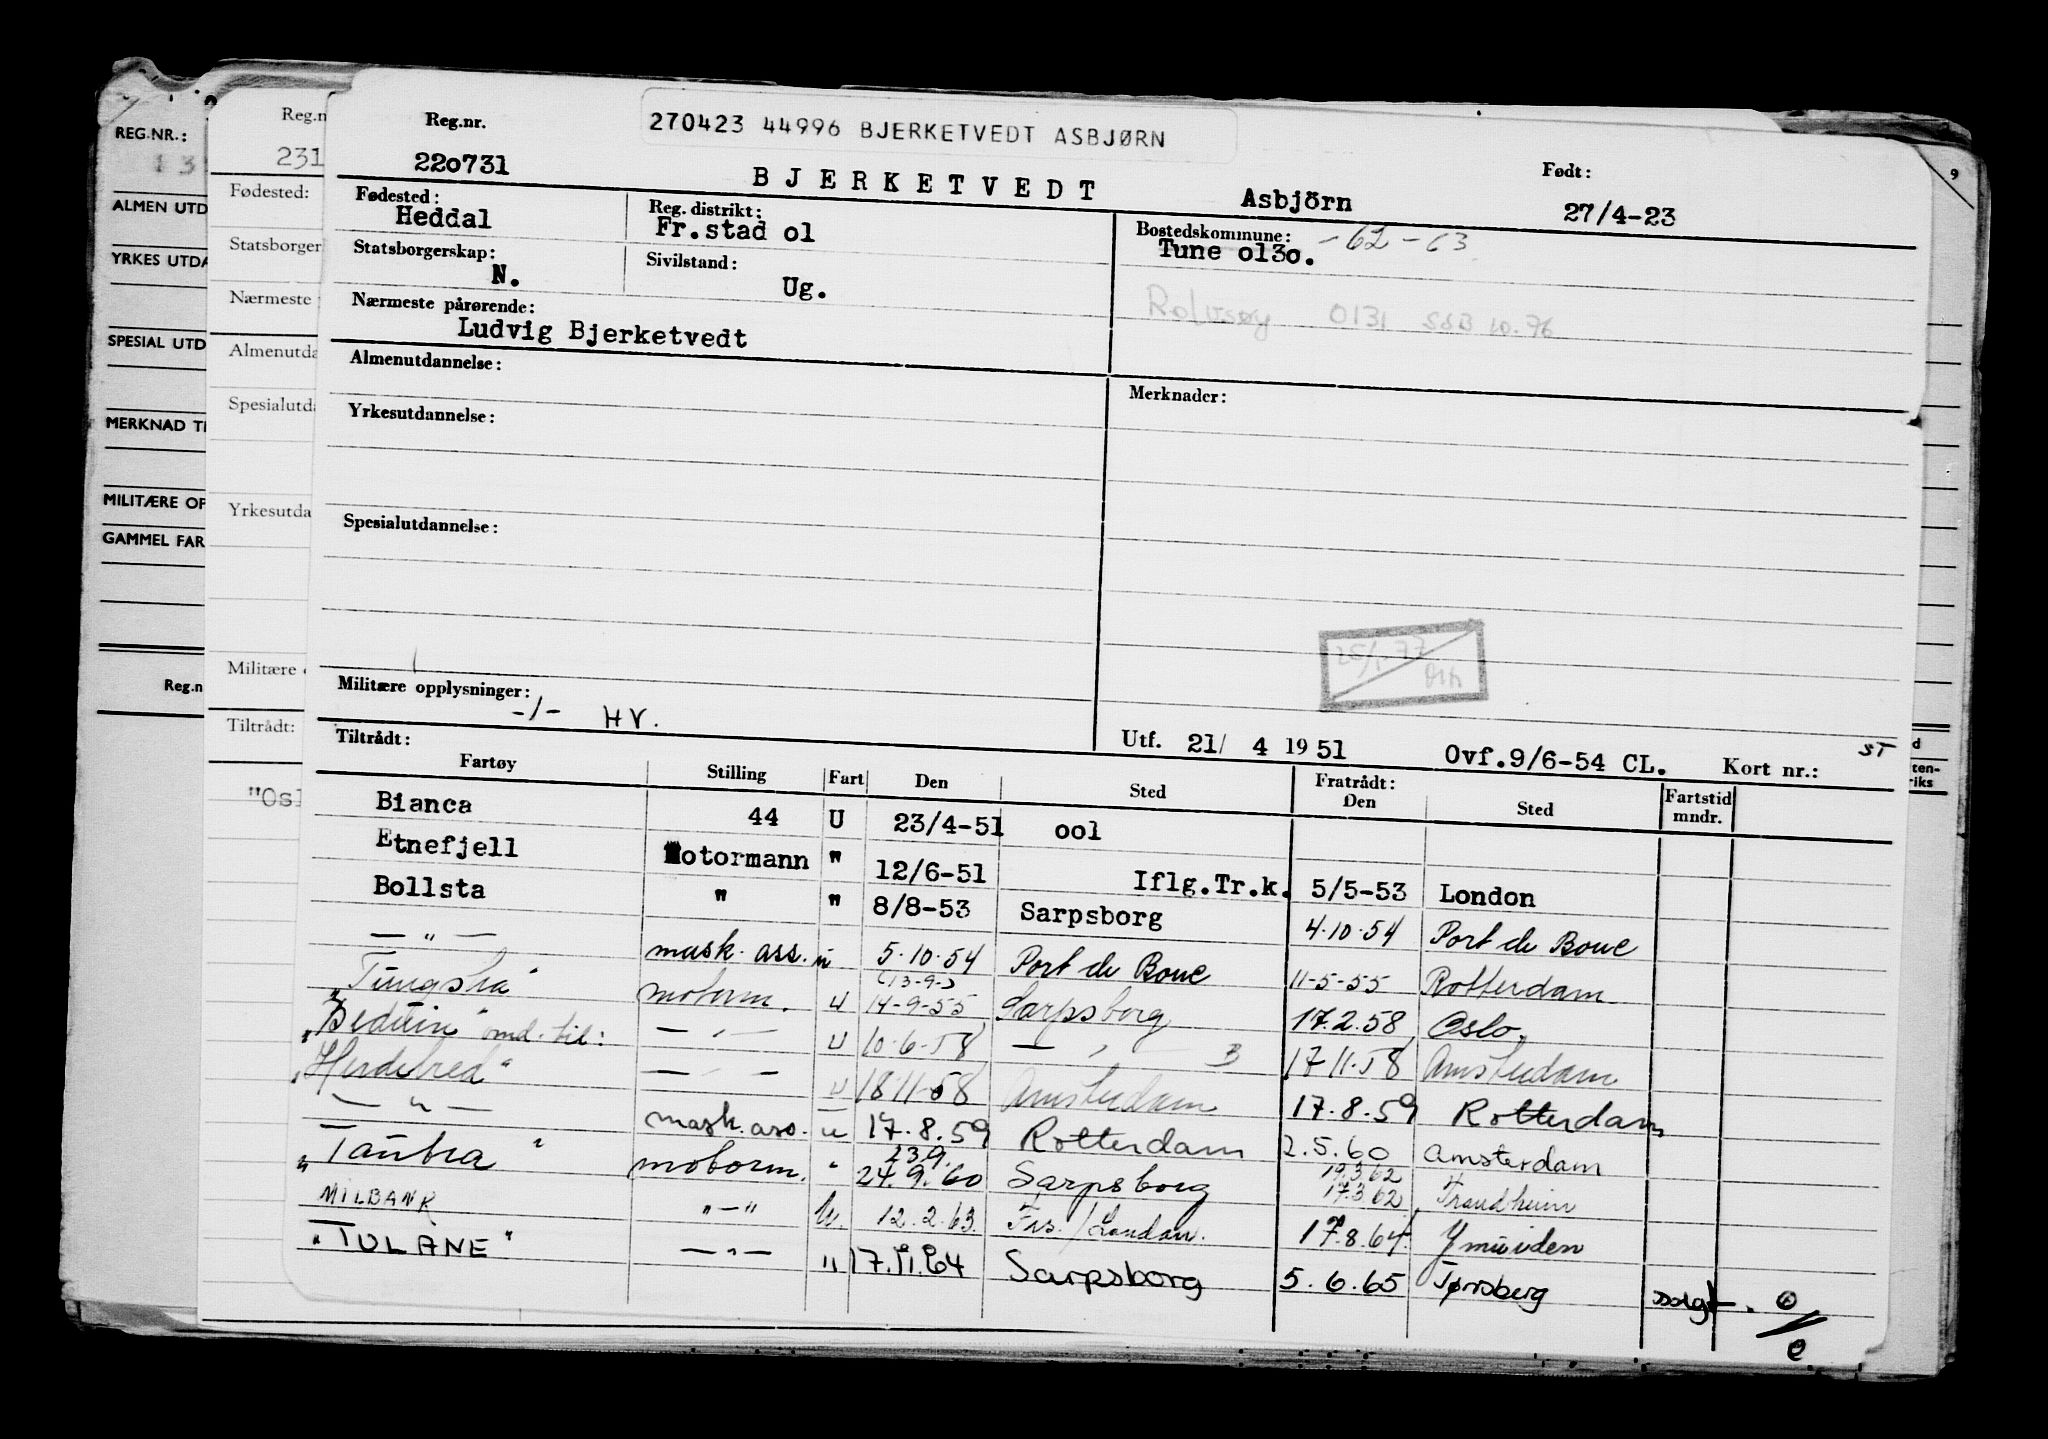 REG.NR.:
ALMEN UTD
YRKES UTDA
SPECIAL UTD
MERKNAD TI
MILITÆRE OP
GAMMEL FAR
Reg.n
Reg.n
231
Fødested:
Statsborger
Nærmeste
Almenutda
Spesialutda
Yrkesutda
Militære
Tiltrådt:
"Osl
9
270423 44996 BJERKETVEDT ASBJØRN
Reg.nr. Født:
220731 BJERKETVEDT Asbjörn 27/4-23
Fødested: Reg. distrikt: Bostedskommune: -62-63
Heddal Fr.stad ol Tune o13o.
Statsborgerskap: Sivilstand:
N. Ug.
Rolvsøy 0131 SSB 10.76
Nærmeste pårørende:
Ludvig Bjerketvedt
Almenutdannelse: Merknader:
Yrkesutdannelse:
Spesialutdannelse:
Militære opplysninger:
-/- HV.
Utf. 21/ 4 1951 Ovf.9/6-54 CL. Kort nr.: ST
Tiltrådt: Fratrådt:
Fartøy Stilling Fart Den Sted Den Sted Fartstid mndr.
Bianca 44 U 23/4-51 ool
Etnefjell Motormann " 12/6-51 Iflg.Tr.k. 5/5-53 London
Bollsta " " 8/8-53 Sarpsborg 4.10.54 Port de Bouc
— " — mask. ass. u 5.10.54 Port de Bouc 11-5-55 Rotterdam
"Tungsha" motorm. u (13-9-) 14-9-55 Sarpsborg 17.2.58 Oslo.
"Beduin" omd. til: — " — u 10.6.58 — " — 17.11.58 Amsterdam
"Herdubred" — " — u 18.11.58 Amsterdam 17.8.59 Rotterdam
— " — mask. ass. u 17.8.59 Rotterdam 2.5.60 Amsterdam
"Taubra" motorm. " 23.9. 24.9.60 Sarpsborg 19.3.62 17.3.62 Trondheim
MILBANK "—" U. 12.2.63. Frs./London. 17.8.64. Ymuiden
"TULANE" — " — " 17.11.64 Sarpsborg 5.6.65 Tønsberg solgt.